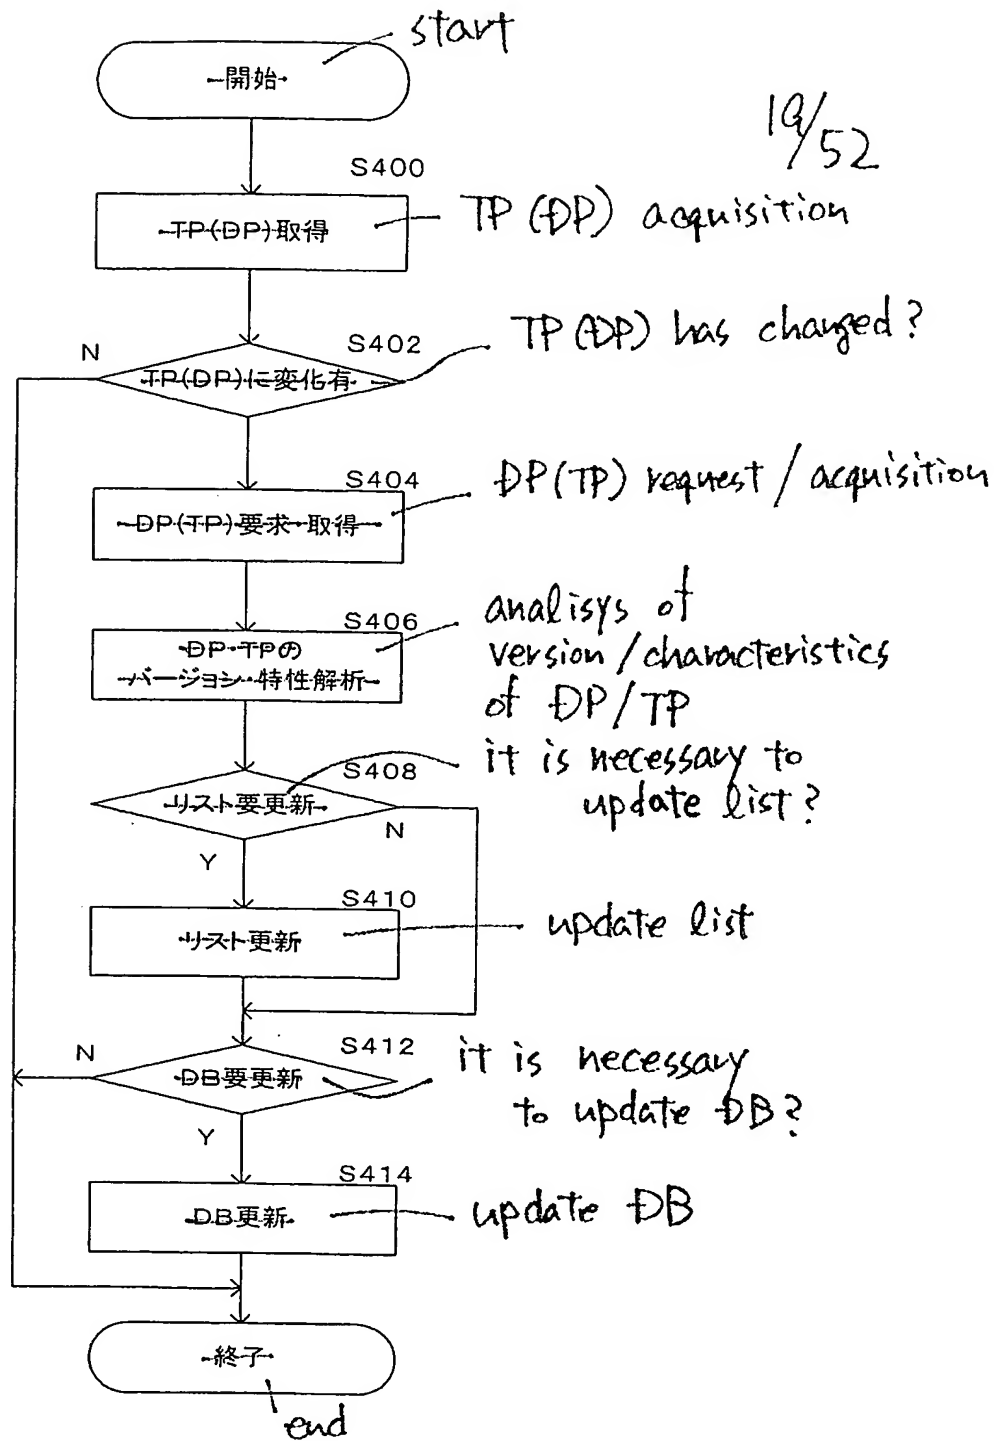 start
開始
19/52
S400
TP(DP)取得
TP (DP) acquisition
S402
N
TP(DP)に変化有
TP (DP) has changed?
S404
DP(TP)要求・取得
DP(TP) request / acquisition
S406
DP・TPの
バージョン・特性解析
analisys of
version/characteristics
of DP/TP
S408
リスト要更新
it is necessary to
update list?
N
Y
S410
リスト更新
update list
S412
N
DB要更新
it is necessary
to update DB?
Y
S414
DB更新
update DB
終了
end